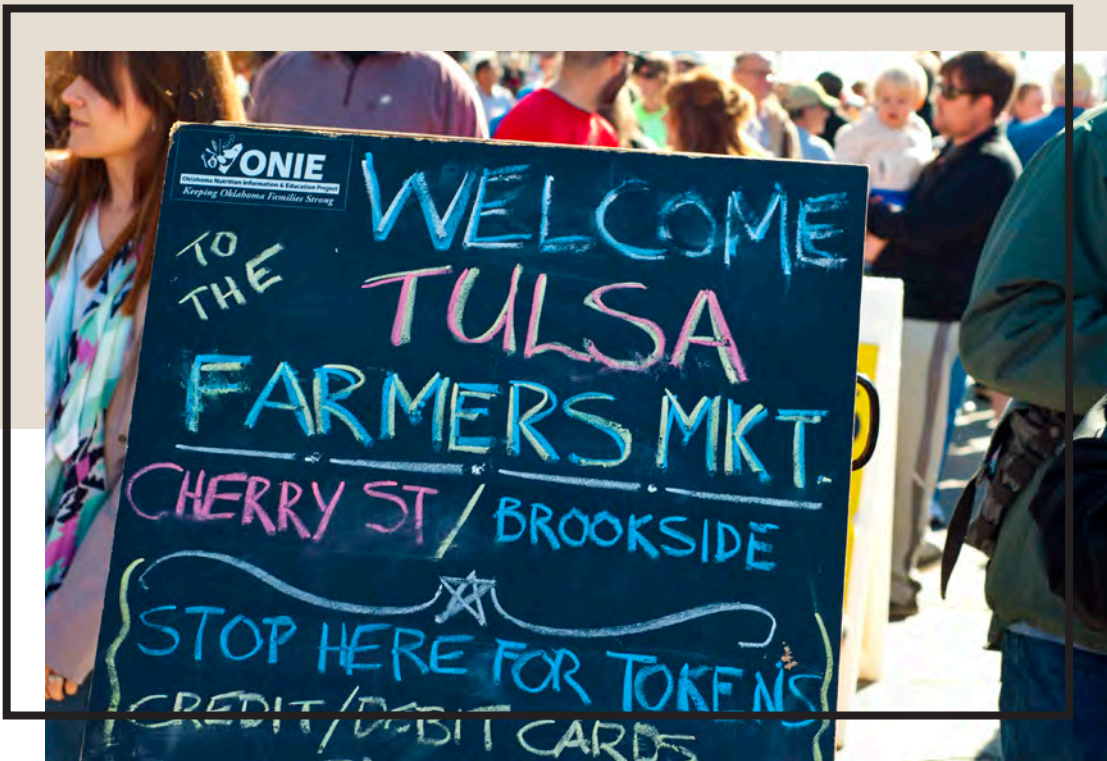 ONIE
Oklahoma Nutrition Information & Education Project
Keeping Oklahoma Families Strong
WELCOME
TO
THE
TULSA
FARMERS MKT.
CHERRY ST / BROOKSIDE
STOP HERE FOR TOKENS
CREDIT/DEBIT CARDS